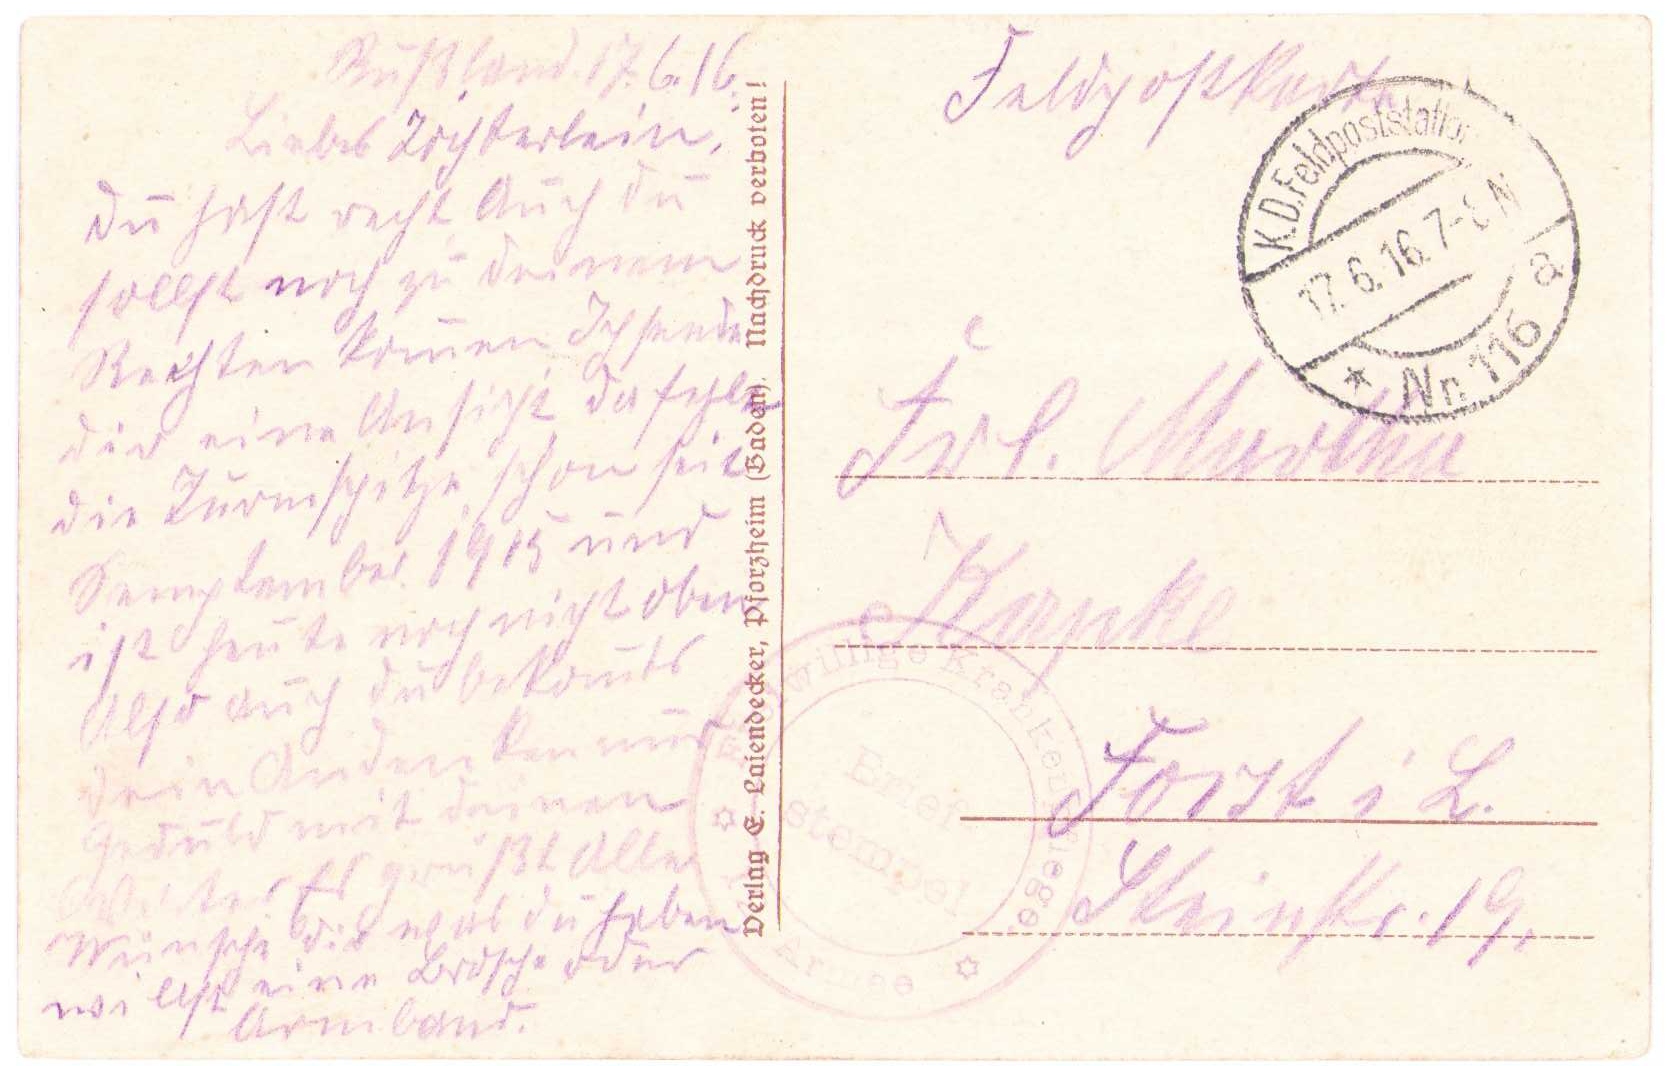 Rußland. 17.6.16.
Liebes Töchterlein,
Du hast recht Auch du
sollst noch zu deinem
Rechten komen Ich sende
dir eine Ansicht da fehlt
die Turmspitze schon seit
Semptember 1915 und
ist heute noch nicht oben
Also auch du bekomts
dein Andenken nur
Geduld mit deinen
Es grüßt Alle
Wünsche dir was du haben
willst eine Brosche oder
Armband.
Verlag E. Laiendecker, Pforzheim (Baden). Nachdruck verboten!
Feldpostkarte
K.D.Feldpoststation
17.6.16.7-8N
* Nr. 116 a
Frl. Martha
Kapke
Forst i L.
Steinstr. 19.
Freiwillige Krankenpflege
Brief
stempel
Armee